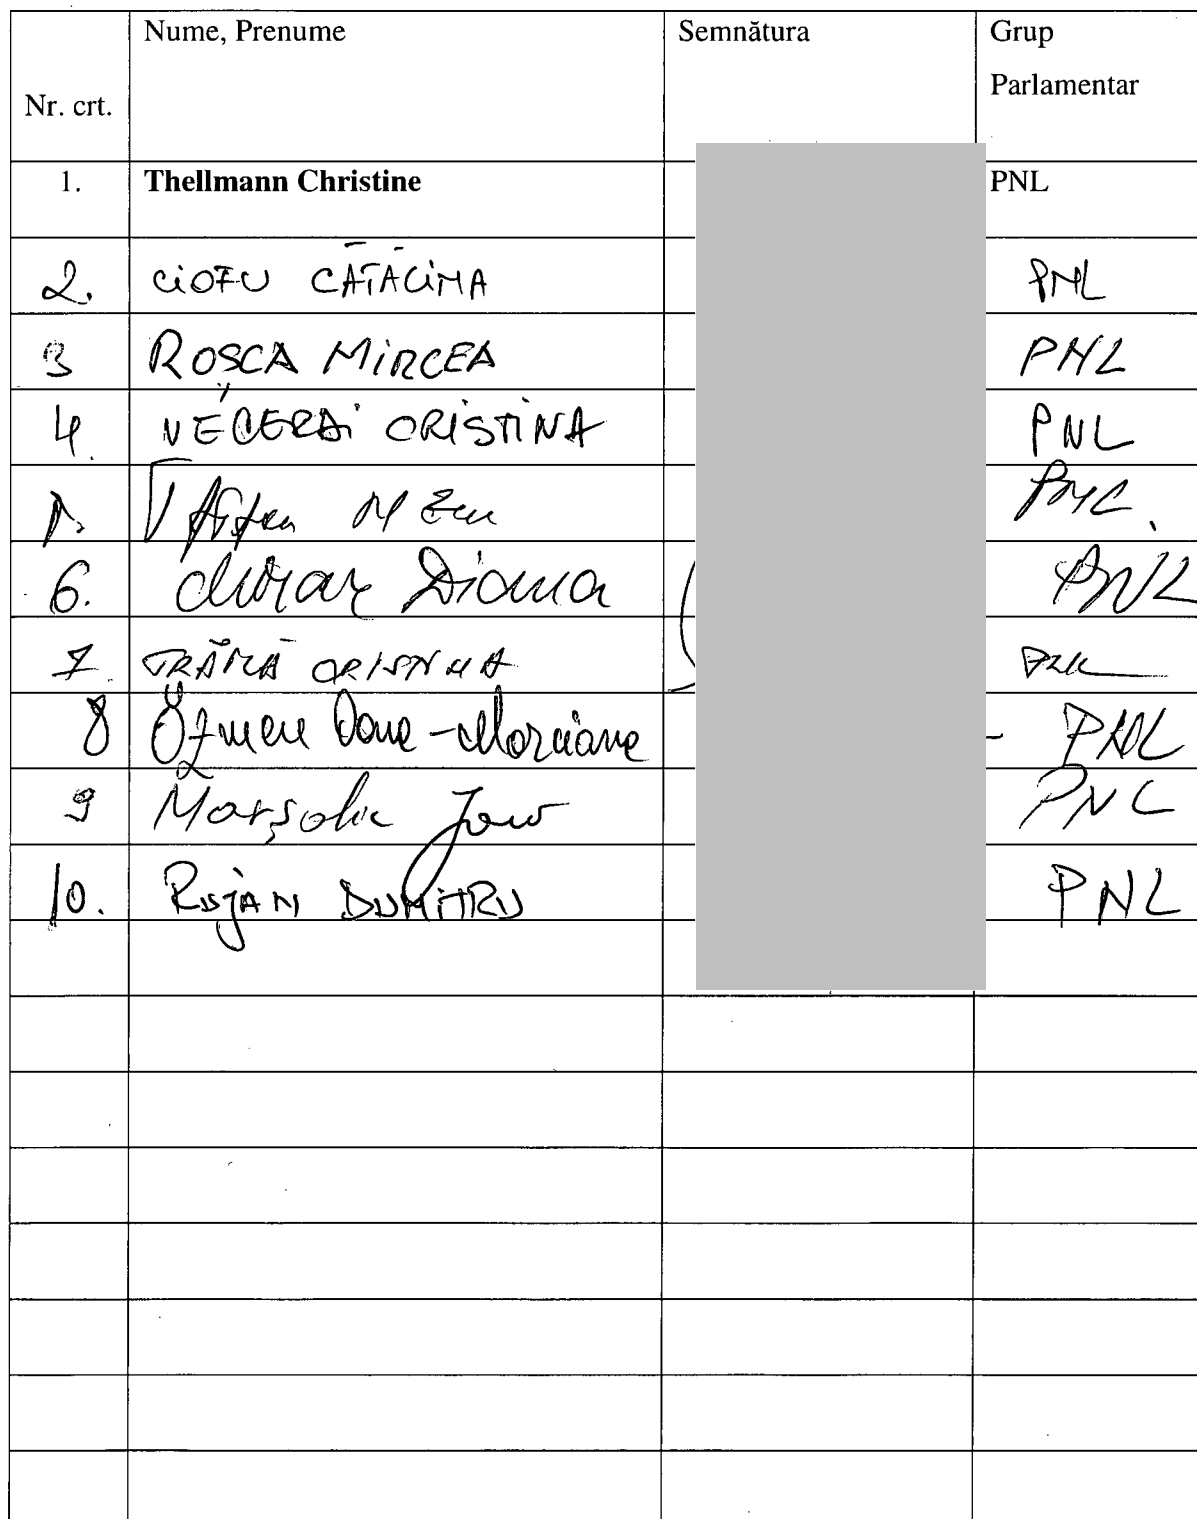 Nume, Prenume Semnătura Grup
Parlamentar
Nr. crt.
1. Thellmann Christine PNL
2. CIOFU CĂTĂLINA PNL
3 ROȘCA MIRCEA PNL
4. CRISTINA PNL
PNL
6. Diana PNL
7. TRĂILĂ CRISTINA PNL
8 Özmen Oana-Marciana - PNL
9 PNL
10. RUJAN DUMITRU PNL